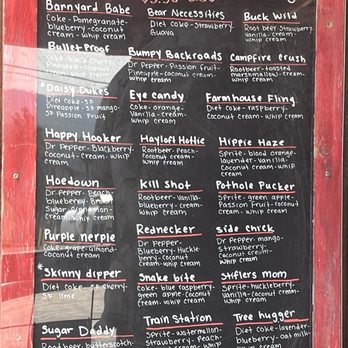 Barnyard Babe
Coke - Pomegranate-
blueberry - coconut
cream - whip cream
Bear Necessities
Diet coke - Strawberry-
Guava
Buck Wild
Root beer - Strawberry
Vanilla - cream -
whip cream
Bullet Proof
Coke - black cherry-
Pineapple - coconut
cream - whip cream
Bumpy Backroads
Dr Pepper - Passion Fruit-
Pineapple - coconut cream-
whip cream
Campfire crush
Rootbeer - toasted
marshmallow - cream -
whip cream
*Daisy Dukes
Diet coke - SF
Pineapple - SF mango-
SF Passion Fruit
Eye candy
Coke - orange-
Vanilla - cream -
whip cream
Farmhouse Fling
Diet coke - raspberry-
Coconut cream - whip
cream
Happy Hooker
Dr Pepper - Blackberry-
Coconut cream - whip
cream
Hayloft Hottie
Rootbeer - Peach-
coconut cream - whip
cream
Hippie Haze
Sprite - blood orange-
lavender - Vanilla-
Coconut cream -
whip cream
Hoedown
Dr Pepper - Peach-
blueberry - Brown
Sugar cinnamon-
cream - whip cream
Kill Shot
Rootbeer - Vanilla-
blueberry - cream -
whip cream
Pothole Pucker
Sprite - green apple-
Passion Fruit - coconut
cream - whip cream
Purple nerple
Coke - grape - almond-
coconut cream
Rednecker
Dr Pepper-
Blueberry - Huckle-
berry - coconut
Cream - whip cream
side chick
Dr Pepper - mango-
Strawberry-
Coconut cream-
whip cream
*Skinny dipper
Diet Coke - SF cherry-
SF lime
Snake bite
Coke - blue raspberry-
green apple - coconut
cream - whip cream
Stiflers mom
Sprite - huckleberry-
Vanilla - coconut cream-
whip cream
Sugar Daddy
Root beer - butterscotch-
Train Station
Sprite - watermelon-
Strawberry - Peach-
Coconut
Tree hugger
Diet coke - lavender-
blueberry - oat milk-